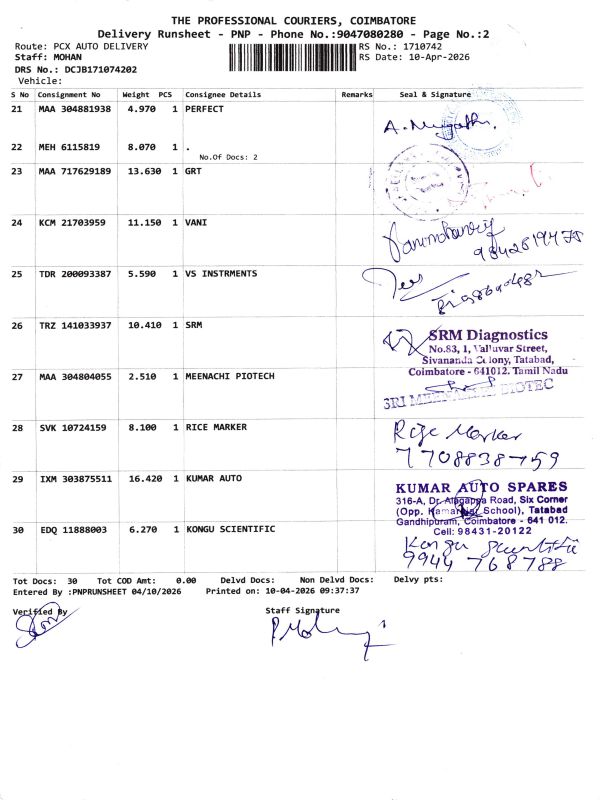 THE PROFESSIONAL COURIERS, COIMBATORE
Delivery Runsheet - PNP - Phone No.:9047080280 - Page No.:2
Route: PCX AUTO DELIVERY RS No.: 1710742
Staff: MOHAN RS Date: 10-Apr-2026
DRS No.: DCJB171074202
Vehicle:
S No Consignment No Weight PCS Consignee Details Remarks Seal & Signature
21 MAA 304881938 4.970 1 PERFECT
22 MEH 6115819 8.070 1 .
No.Of Docs: 2
23 MAA 717629189 13.630 1 GRT
24 KCM 21703959 11.150 1 VANI
25 TDR 200093387 5.590 1 VS INSTRMENTS
26 TRZ 141033937 10.410 1 SRM
SRM Diagnostics
No.83, 1, Valluvar Street,
Sivananda Colony, Tatabad,
Coimbatore - 641012. Tamil Nadu
27 MAA 304804055 2.510 1 MEENACHI PIOTECH
28 SVK 10724159 8.100 1 RICE MARKER
7708838759
29 IXM 303875511 16.420 1 KUMAR AUTO
KUMAR AUTO SPARES
316-A, Dr. Alagappa Road, Six Corner
(Opp. Kamarajar School), Tatabad
Gandhipuram, Coimbatore - 641 012.
Cell: 98431-20122
30 EDQ 11888003 6.270 1 KONGU SCIENTIFIC
9944 768788
Tot Docs: 30 Tot COD Amt: 0.00 Delvd Docs: Non Delvd Docs: Delvy pts:
Entered By :PNPRUNSHEET 04/10/2026 Printed on: 10-04-2026 09:37:37
Verified By Staff Signature